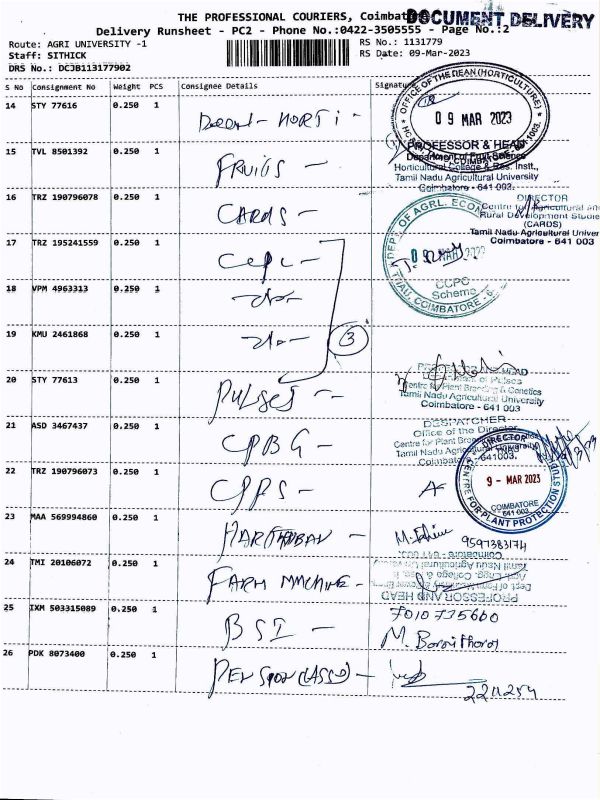 THE PROFESSIONAL COURIERS, Coimbatore
DOCUMENT DELIVERY
Delivery Runsheet - PC2 - Phone No.:0422-3505555 - Page No.:2
Route: AGRI UNIVERSITY -1
RS No.: 1131779
Staff: SITHICK
RS Date: 09-Mar-2023
DRS No.: DCJB113177902
S No Consignment No Weight PCS Consignee Details Signature
OFFICE OF THE DEAN (HORTICULTURE)
09 MAR 2023
14 STY 77616 0.250 1 Dean - HORTI -
PROFESSOR & HEAD
15 TVL 8501392 0.250 1 FRUITS -
Department of Fruit Science
Horticultural College & Res. Instt.,
Tamil Nadu Agricultural University
Coimbatore - 641 003.
16 TRZ 190796078 0.250 1 CARDS -
DIRECTOR
Centre for Agricultural and
Rural Development Studies
(CARDS)
Tamil Nadu Agricultural Univer
Coimbatore - 641 003
DEPT. OF AGRL. ECO
09 MAR 2023
CCPC
Scheme
TNAU, COIMBATORE - 6
17 TRZ 195241559 0.250 1
18 VPM 4963313 0.250 1
19 KMU 2461868 0.250 1
3
20 STY 77613 0.250 1 PULSES -
HEAD
of Pulses
Centre for Plant Breeding & Genetics
Tamil Nadu Agricultural University
Coimbatore - 641 003
21 ASD 3467437 0.250 1 CPBG -
DESPATCHER
Office of the Director
Centre for Plant Breeding
Tamil Nadu Agricultural University
Coimbatore 641003.
22 TRZ 190796073 0.250 1 CPPS -
DIRECTOR
9 - MAR 2023
COIMBATORE
641 003
CENTRE FOR PLANT PROTECTION STUDIES
23 MAA 569994860 0.250 1
9597383174
24 TMI 20106072 0.250 1 FARM MACHINE -
PROFESSOR AND HEAD
Tamil Nadu Agricultural University
Coimbatore - 641 003
25 IXM 503315089 0.250 1 BSI -
7010735660
26 PDK 8073400 0.250 1 PENSION (ASSO) -
2211254